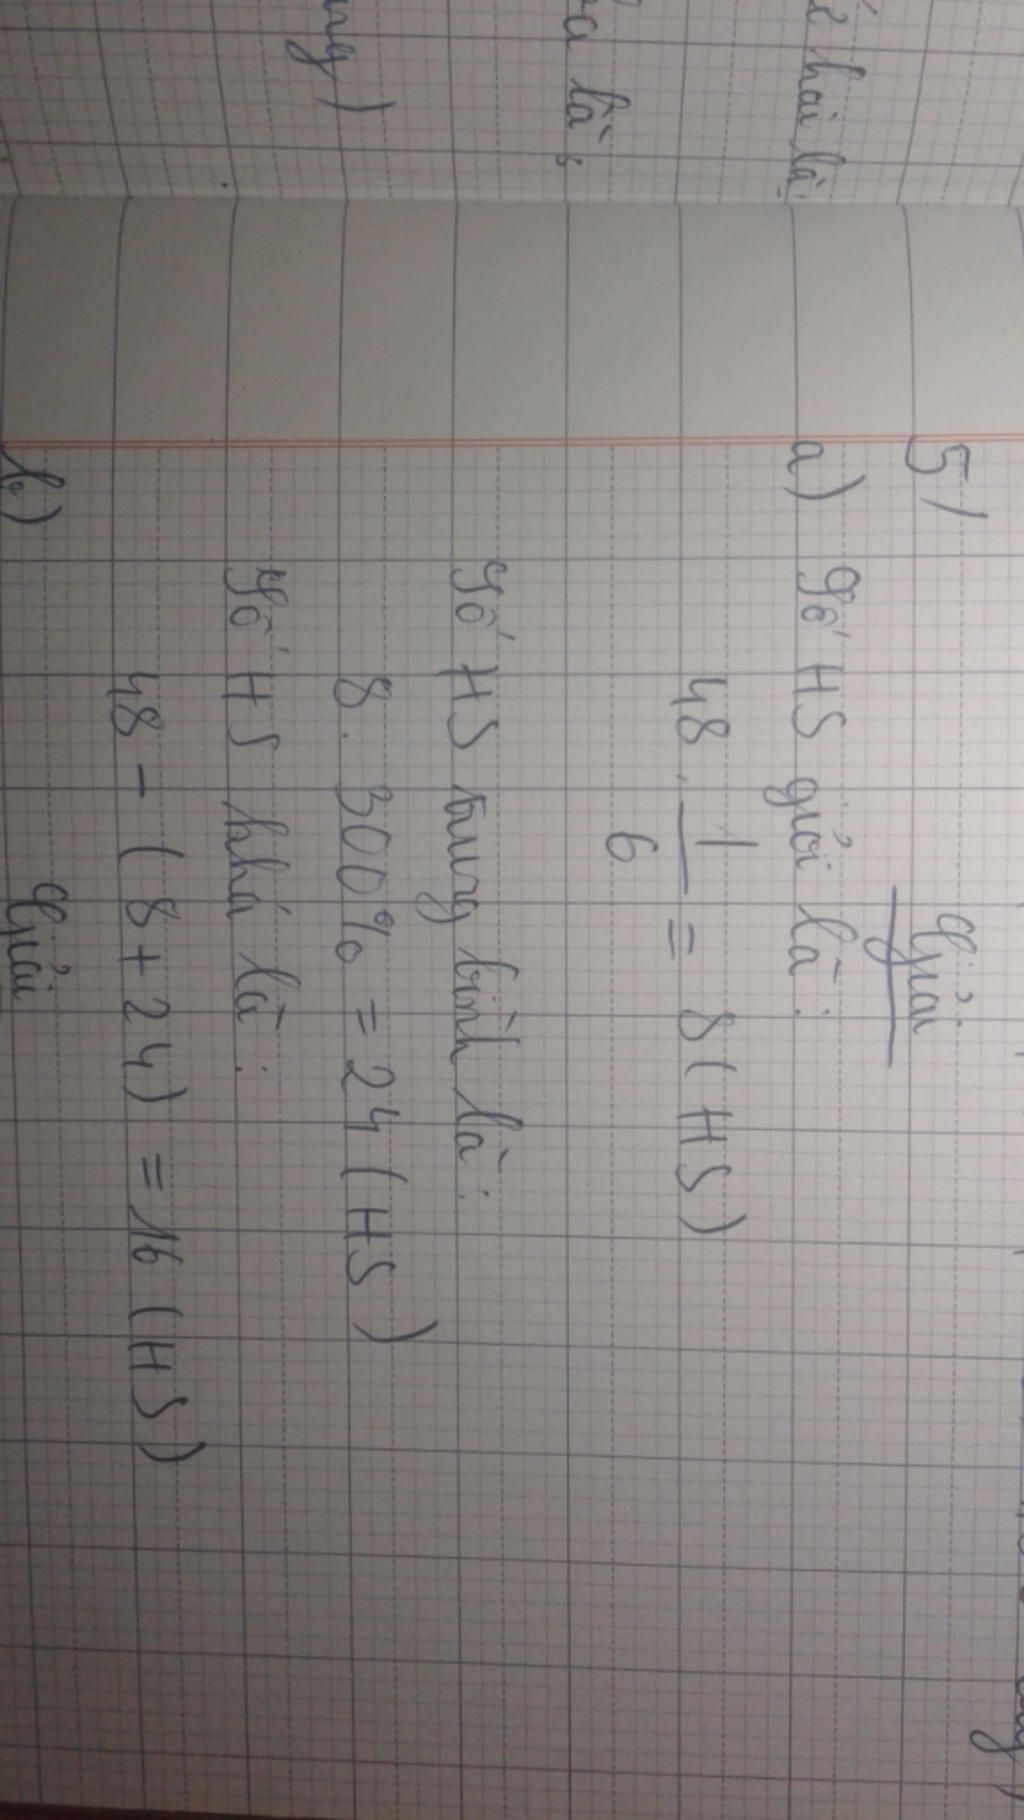 ế hai là:
ba là:
ng)
5/
Giải
a) Số HS giỏi là:
48 . 1/6 = 8 (HS)
Số HS trung bình là:
8 . 300% = 24 (HS)
Số HS khá là:
48 - (8 + 24) = 16 (HS)
b)
Giải